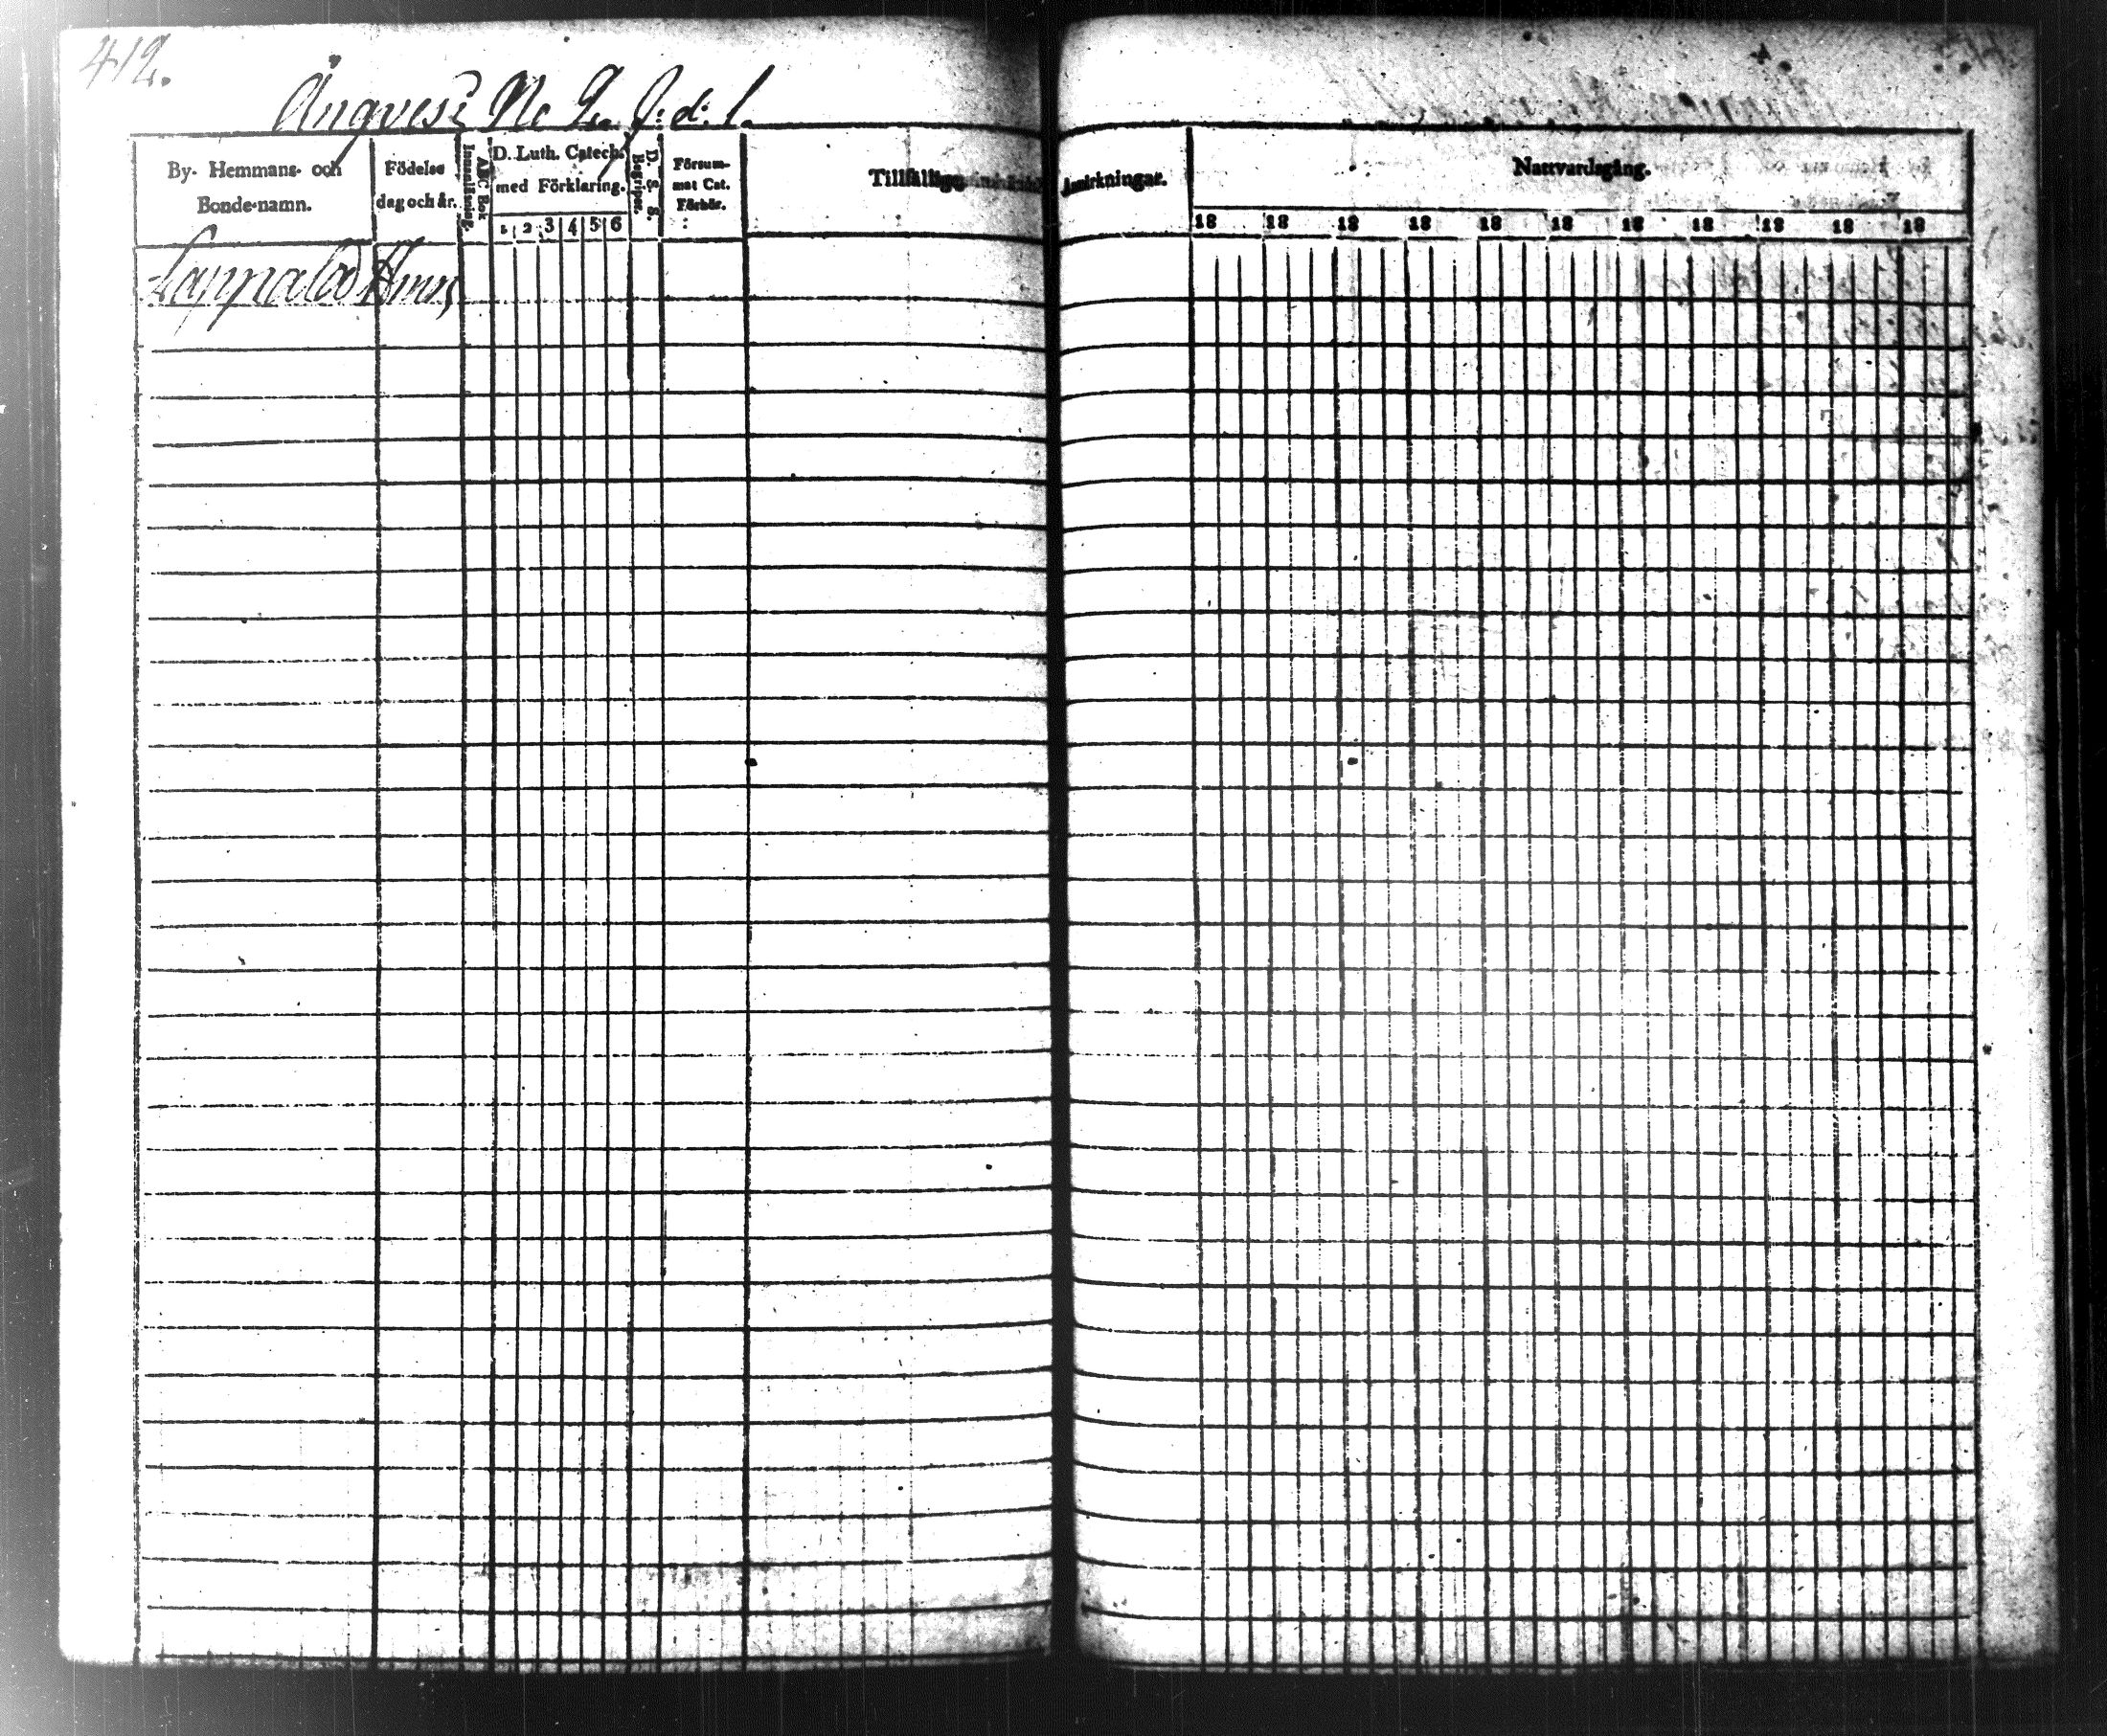 412.
Ängvesi No 9.
By- Hemmans- och Bonde-namn.
Födelse dag och år.
Innanläsning.
ABC Bok
D. Luth. Catech. med Förklaring.
1 2 3 4 5 6
D. S. S.
Begriper.
Försummat Cat. Förhör.
Tillfällige
Anmärkningar.
Nattvardsgång.
18 18 18 18 18 18 18 18 18 18 18